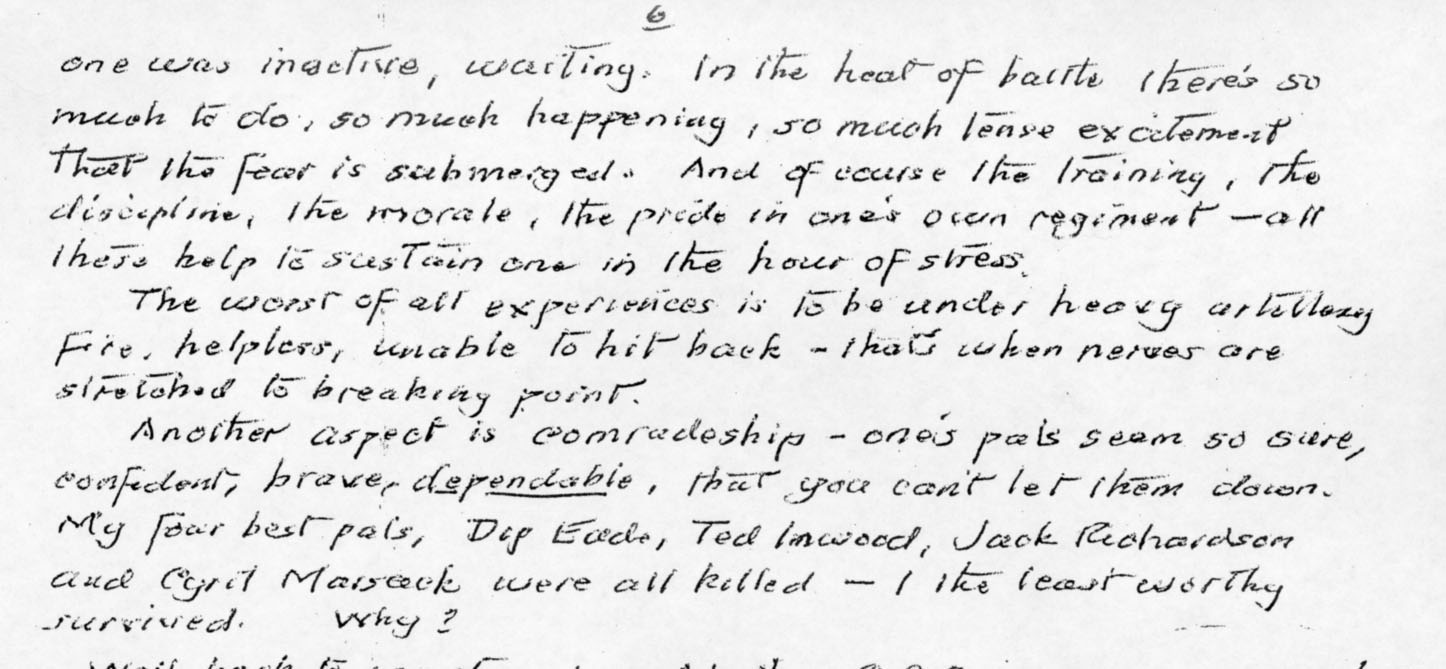 6
one was inactive, waiting. In the heat of battle there's so
much to do, so much happening, so much tense excitement
that the fear is submerged. And of course the training, the
discipline, the morale, the pride in one's own regiment — all
these help to sustain one in the hour of stress.
The worst of all experiences is to be under heavy artillery
fire, helpless, unable to hit back - that's when nerves are
stretched to breaking point.
Another aspect is comradeship - one's pals seem so sure,
confident, brave, dependable, that you can't let them down.
My four best pals, Dip Eade, Ted Inwood, Jack Richardson
and Cyril Marsack were all killed — I the least worthy
survived. Why?
Well back to